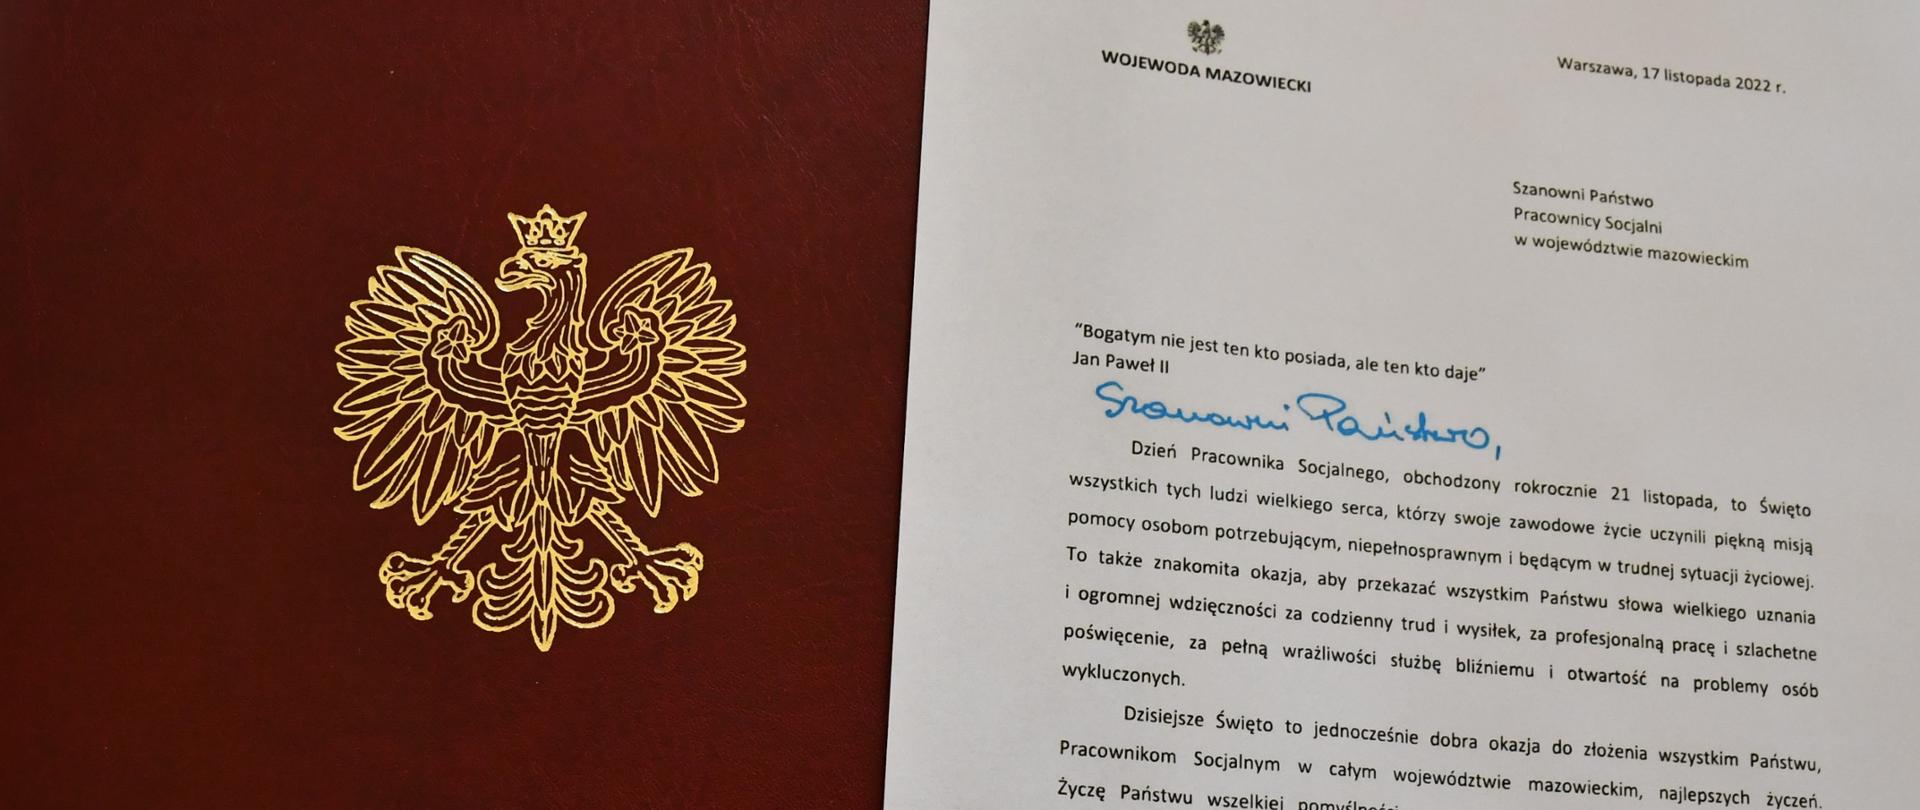 WOJEWODA MAZOWIECKI
Warszawa, 17 listopada 2022 r.
Szanowni Państwo
Pracownicy Socjalni
w województwie mazowieckim
"Bogatym nie jest ten kto posiada, ale ten kto daje"
Jan Paweł II
Szanowni Państwo,
Dzień Pracownika Socjalnego, obchodzony rokrocznie 21 listopada, to Święto
wszystkich tych ludzi wielkiego serca, którzy swoje zawodowe życie uczynili piękną misją
pomocy osobom potrzebującym, niepełnosprawnym i będącym w trudnej sytuacji życiowej.
To także znakomita okazja, aby przekazać wszystkim Państwu słowa wielkiego uznania
i ogromnej wdzięczności za codzienny trud i wysiłek, za profesjonalną pracę i szlachetne
poświęcenie, za pełną wrażliwości służbę bliźniemu i otwartość na problemy osób
wykluczonych.
Dzisiejsze Święto to jednocześnie dobra okazja do złożenia wszystkim Państwu,
Pracownikom Socjalnym w całym województwie mazowieckim, najlepszych życzeń.
Życzę Państwu wszelkiej